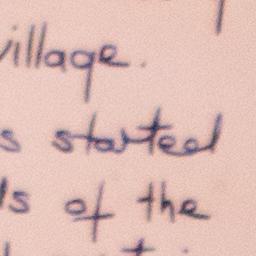 village.
s started
ls of the